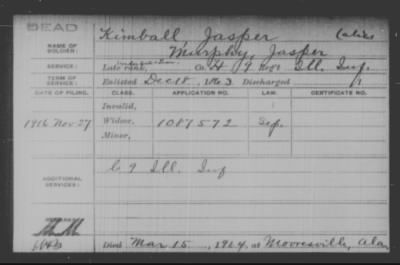 DEAD
Kimball, Jasper (alias
NAME OF SOLDIER: Murphy, Jasper
SERVICE: Late rank, Co. H 9 Ill. Inf.
TERM OF SERVICE: Enlisted Dec 18, 1863 Discharged , 1
DATE OF FILING. CLASS. APPLICATION NO. LAW. CERTIFICATE NO.
Invalid,
1916 Nov 27 Widow, 1087572 Sep.
Minor,
ADDITIONAL SERVICES: C 9 Ill. Inf
Died Mar 15, 1914, at Mooresville, Ala